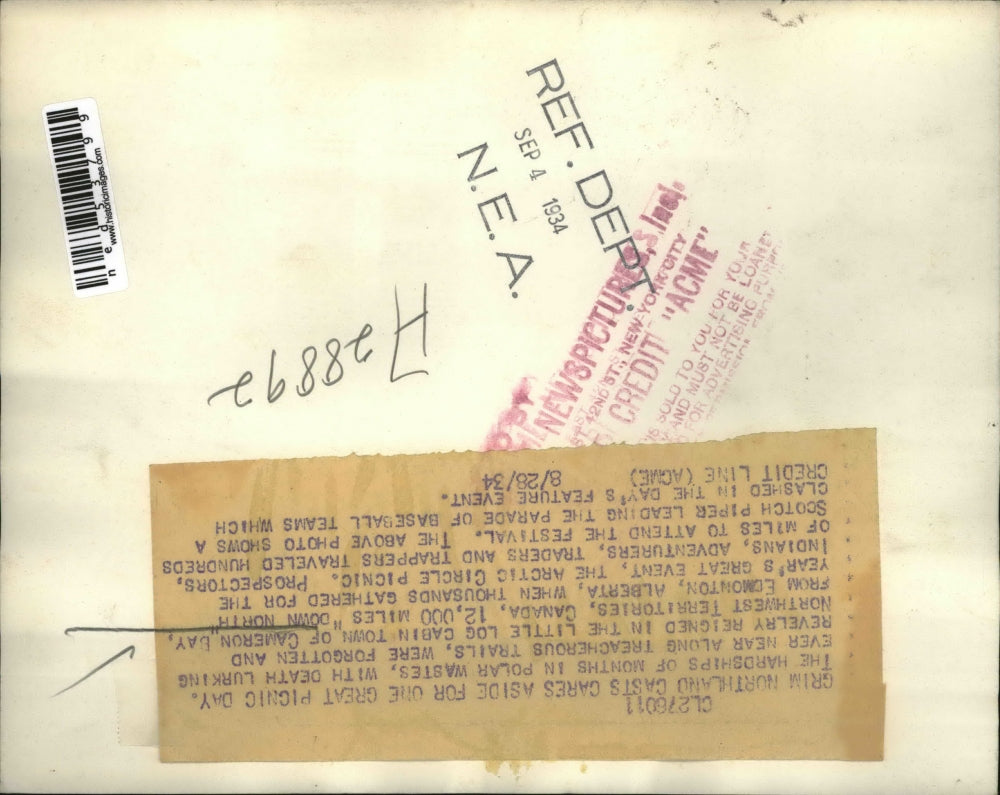 REF. DEPT.
SEP 4 1934
N. E. A.
NEWSPICTURES, Inc.
42ND ST., NEW YORK CITY
CREDIT "ACME"
SOLD TO YOU FOR YOUR
AND MUST NOT BE LOANED
FOR ADVERTISING
www.historicimages.com
H28892
CL276011
GRIM NORTHLAND CASTS CARES ASIDE FOR ONE GREAT PICNIC DAY.
THE HARDSHIPS OF MONTHS IN POLAR WASTES, WITH DEATH LURKING
EVER NEAR ALONG TREACHEROUS TRAILS, WERE FORGOTTEN AND
REVELRY REIGNED IN THE LITTLE LOG CABIN TOWN OF CAMERON BAY,
NORTHWEST TERRITORIES, CANADA, 12,000 MILES "DOWN NORTH"
FROM EDMONTON, ALBERTA, WHEN THOUSANDS GATHERED FOR THE
YEAR'S GREAT EVENT, THE ARCTIC CIRCLE PICNIC. PROSPECTORS,
INDIANS, ADVENTURERS, TRADERS AND TRAPPERS TRAVELED HUNDREDS
OF MILES TO ATTEND THE FESTIVAL. THE ABOVE PHOTO SHOWS A
SCOTCH PIPER LEADING THE PARADE OF BASEBALL TEAMS WHICH
CLASHED IN THE DAY'S FEATURE EVENT.
CREDIT LINE (ACME) 8/28/34